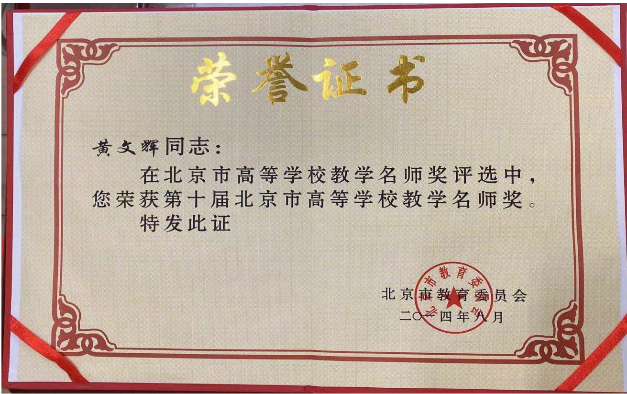 荣誉证书
黄文辉同志：
在北京市高等学校教学名师奖评选中，
您荣获第十届北京市高等学校教学名师奖。
特发此证
北京市教育委员会
二〇一四年八月
北京市教育委员会